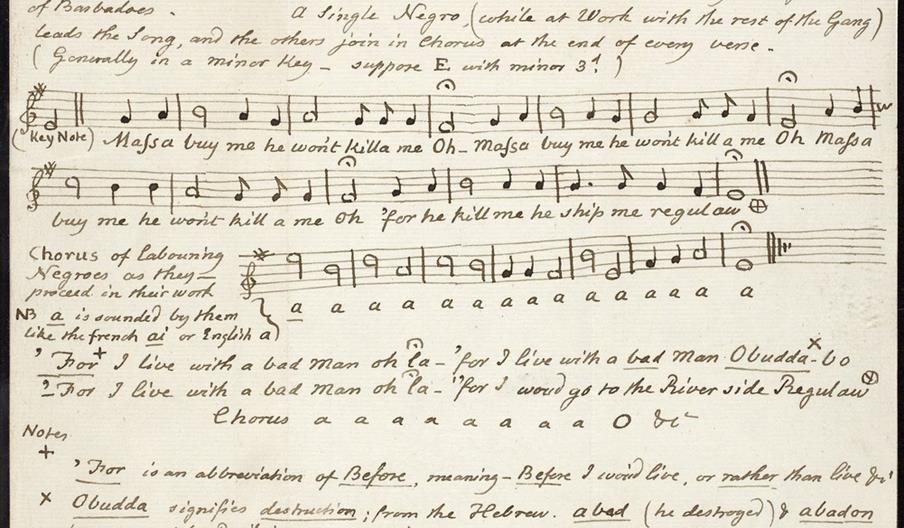 of Barbadoes. A Single Negro (while at Work with the rest of the Gang)
leads the Song, and the others join in Chorus at the end of every verse.
(Generally in a minor Key – suppose E with minor 3d.)
(Key Note) Massa buy me he won't killa me Oh – Massa buy me he won't kill a me Oh Massa
buy me he won't kill a me Oh 'for he kill me he ship me regulaw ⊕
Chorus of labouring
Negroes as they –
proceed in their work
a a a a a a a a a a a a a
NB a is sounded by them
like the french ai or English a
'For + I live with a bad man oh la – 'for I live with a bad man Obudda x - bo
'For I live with a bad man oh la – 'for I would go to the River side Regulaw ⊕
Chorus a a a a a a a a O &c
Notes
+
'For is an abbreviation of Before, meaning – Before I would live, or rather than live &c
x Obudda signifies destruction; from the Hebrew. abad (he destroyed) & abadon